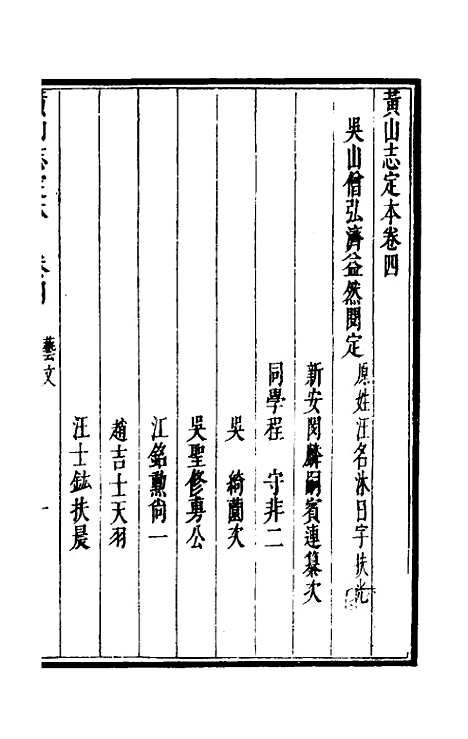 黃山志定本卷四
吳山僧弘濟益然閱定
原姓汪名沐日字扶光
新安閔麟嗣賓連纂次
同學程 守非二
吳 綺薗次
吳聖修勇公
江銘勳尙一
趙吉士天羽
汪士鋐扶晨
黃山志定本 卷四 藝文 一